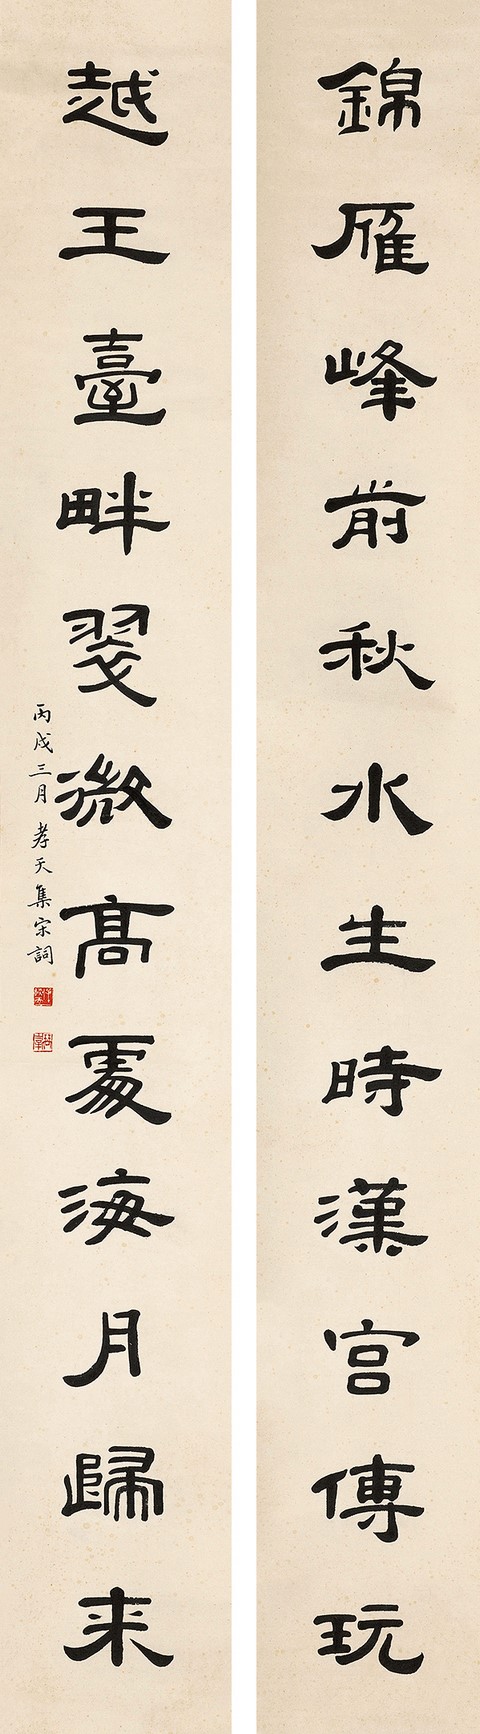 錦雁峰前秋水生時漢宮傳玩
越王臺畔翠微高處海月歸来
丙戌三月孝天集宋詞